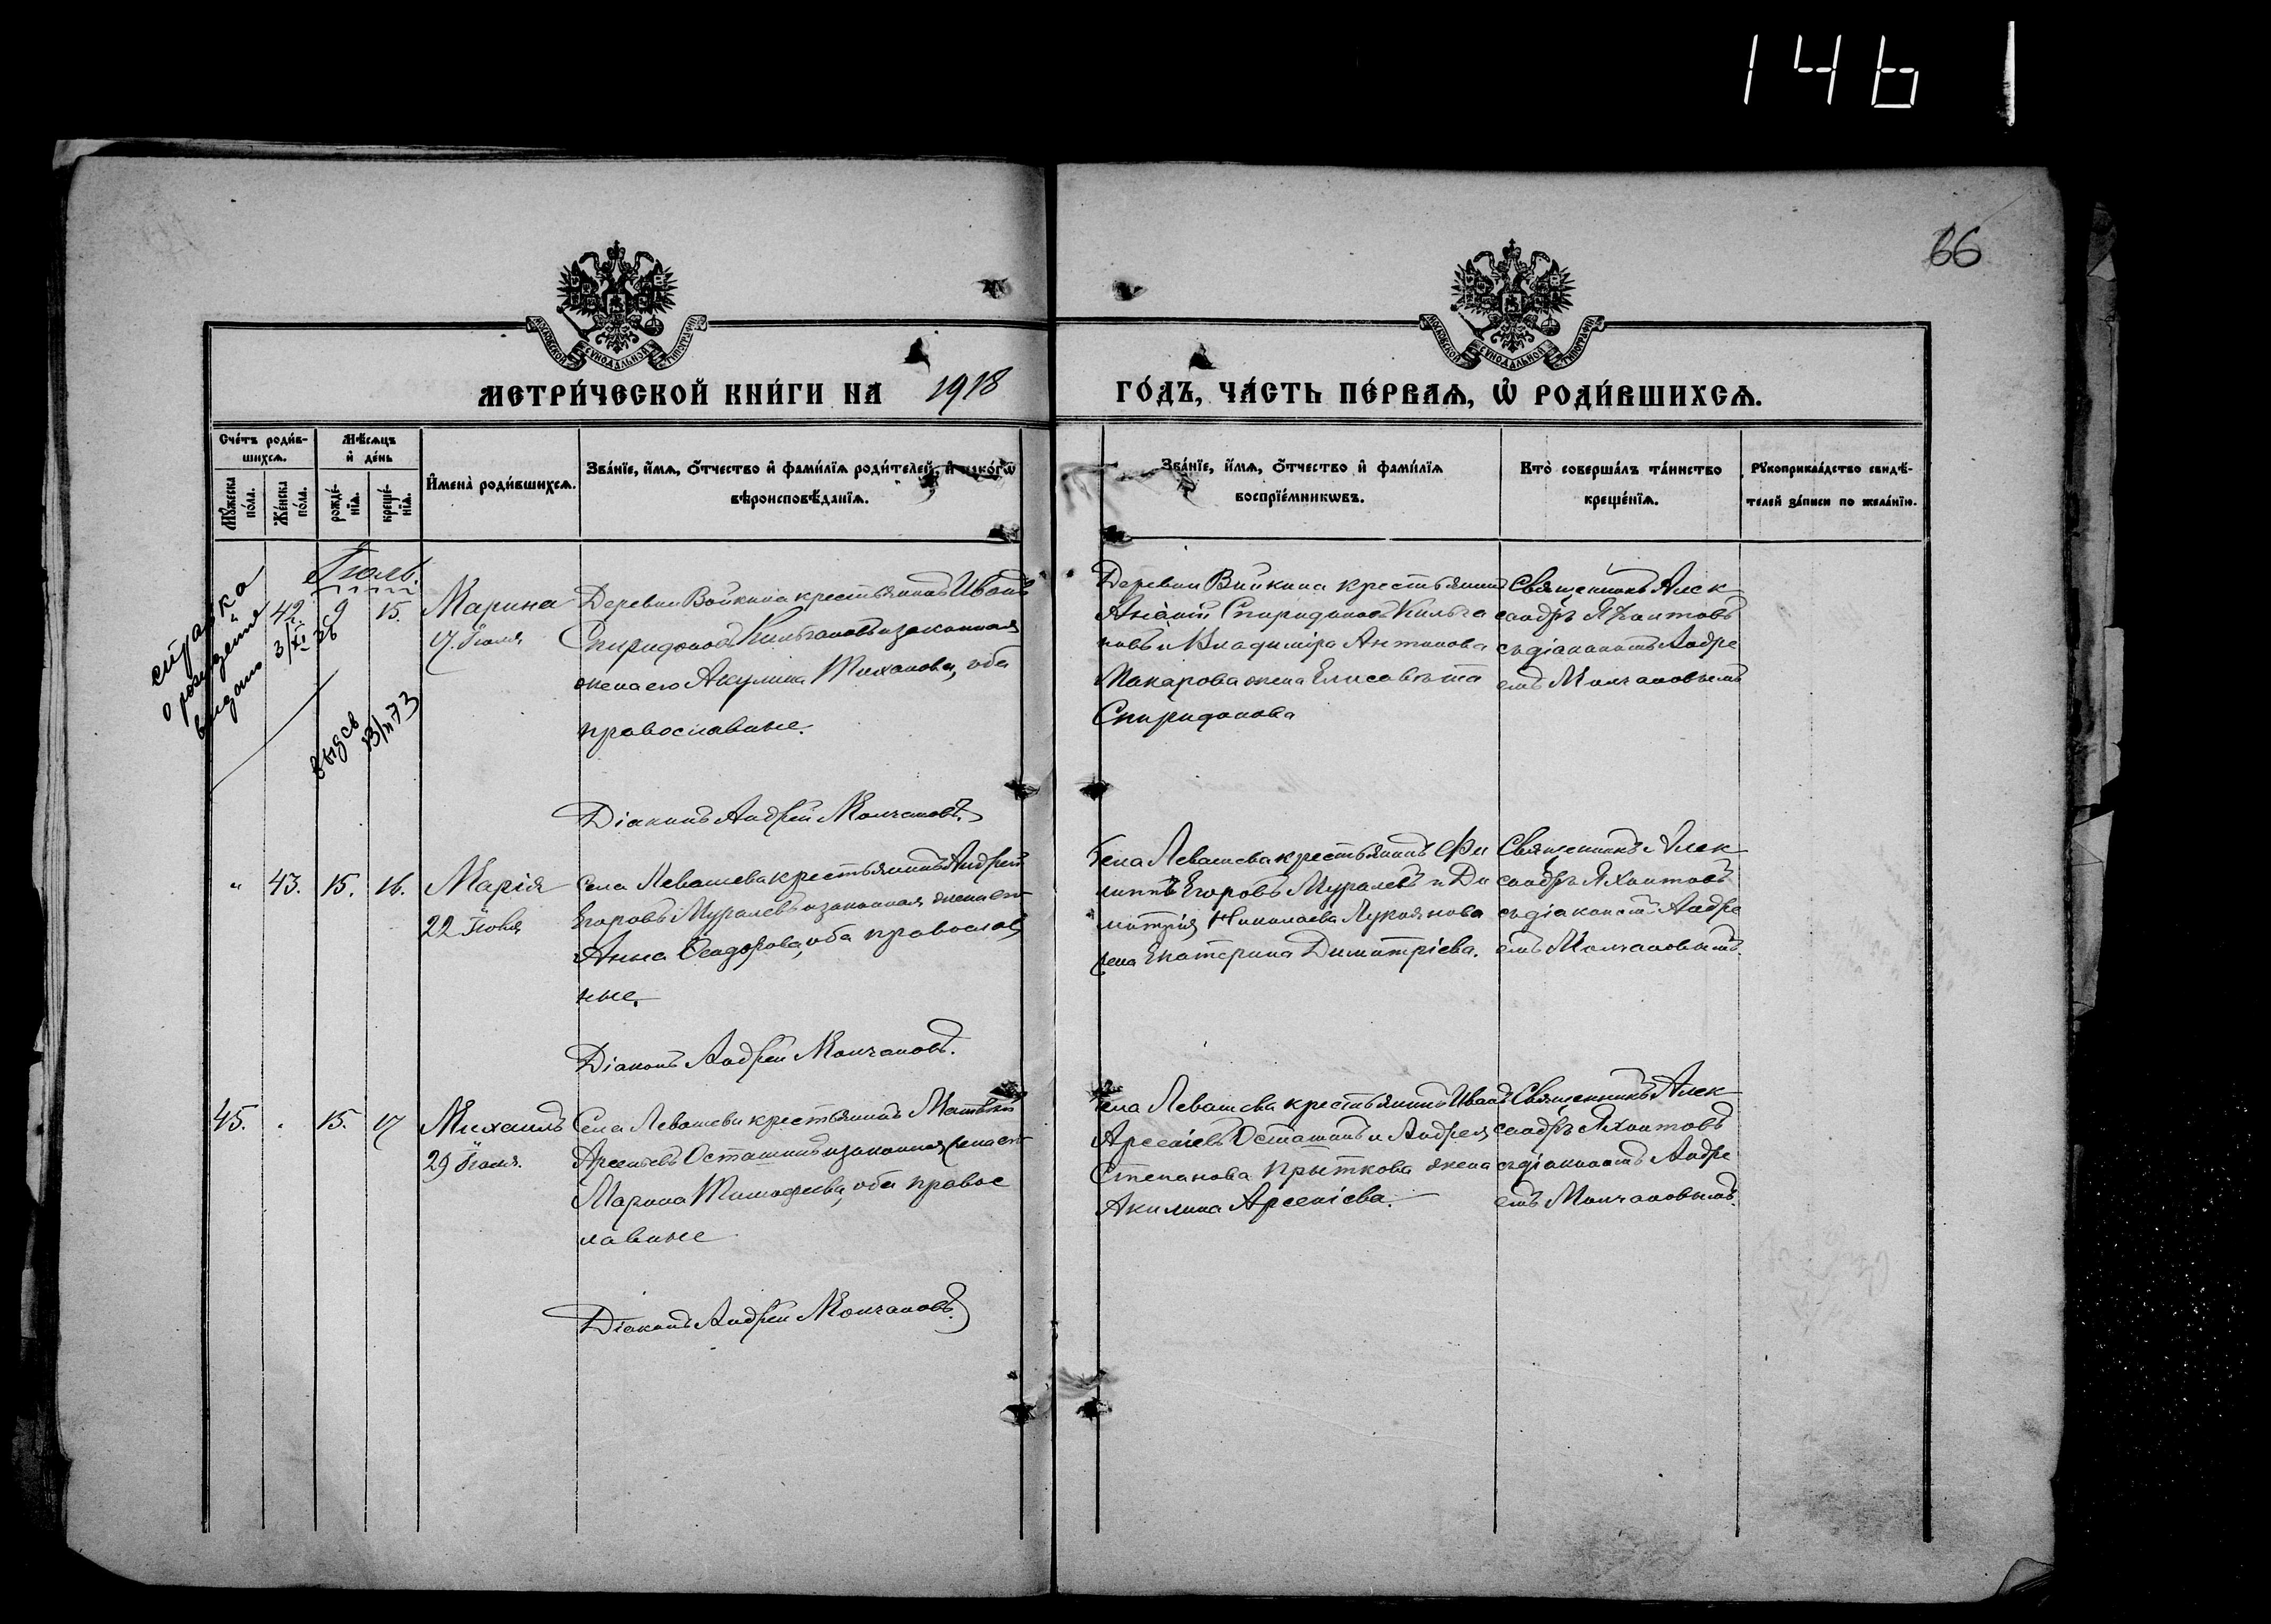 146
66
МОСКОВСКОЙ СѴНОДАЛЬНОЙ ТИПОГРАФІИ
МОСКОВСКОЙ СѴНОДАЛЬНОЙ ТИПОГРАФІИ
МЕТРИ́ЧЕСКОЙ КНИ́ГИ НА 1918
ГО́ДЪ, ЧА́СТЬ ПЕ́РВАѦ, Ѽ РОДИ́ВШИХСѦ.
Сче́тъ роди́в-
шихсѧ.
Мꙋ́жеска
по́ла.
Же́нска
по́ла.
Мѣ́сѧцъ
и҆ де́нь
рожде́-
нїѧ.
креще́-
нїѧ.
И҆мена̀ роди́вшихсѧ.
Зва́нїе, и҆́мѧ, ѻ҆́тчество и҆ фами́лїѧ роди́телей, и҆ како́гѡ
вѣроисповѣ́данїѧ.
Зва́нїе, и҆́мѧ, ѻ҆́тчество и҆ фами́лїѧ
воспрїе́мникѡвъ.
Кто̀ соверша́лъ та́инство
креще́нїѧ.
Рꙋкоприкла́дство свидѣ́-
телей за́писи по жела́нїю.
Іюль.
справка
о рождении
выдана 3/XI 36
выдсв
13/III 73
42. 9 15. Марина
17. Іюля
Деревни Войкина крестьянинъ Иванъ
Спиридоновъ Кильгановъ и законная
жена его Акулина Тиханова, оба
православные.
Діаконъ Андрей Молчановъ.
Деревни Войкина крестьянинъ
Спиридоновъ Кильга
новъ и Владиміра Антонова
Макарова жена Елисавѣта
Спиридонова
Священникъ Алек
сандръ Яхонтовъ
съ діакономъ Андре
емъ Молчановымъ
" 43. 15. 16. Марія
22 Іюля
Села Левашева крестьянинъ Андрей
Егоровъ Муралевъ и законная жена его
Анна Ѳеодорова, оба православ
ные.
Діаконъ Андрей Молчановъ.
Села Левашева крестьянинъ Фи
липпъ Егоровъ Муралевъ и Ди
митрія Николаева Лукоянова
жена Екатерина Димитріева.
Священникъ Алек
сандръ Яхонтовъ
съ діакономъ Андре
емъ Молчановымъ.
45. . 15. 17 Михаилъ
29 Іюля.
Села Левашева крестьянинъ Матвѣй
Арсеньевъ Осташинъ и законная жена его
Марина Тимофеева, оба правос
лавные
Діаконъ Андрей Молчановъ.
Села Левашева крестьянинъ Иванъ
Арсеніевъ Осташинъ и Андрея
Степанова Прыткова жена
Акилина Арсеніева.
Священникъ Алек
сандръ Яхонтовъ
съ діакономъ Андре
емъ Молчановымъ.